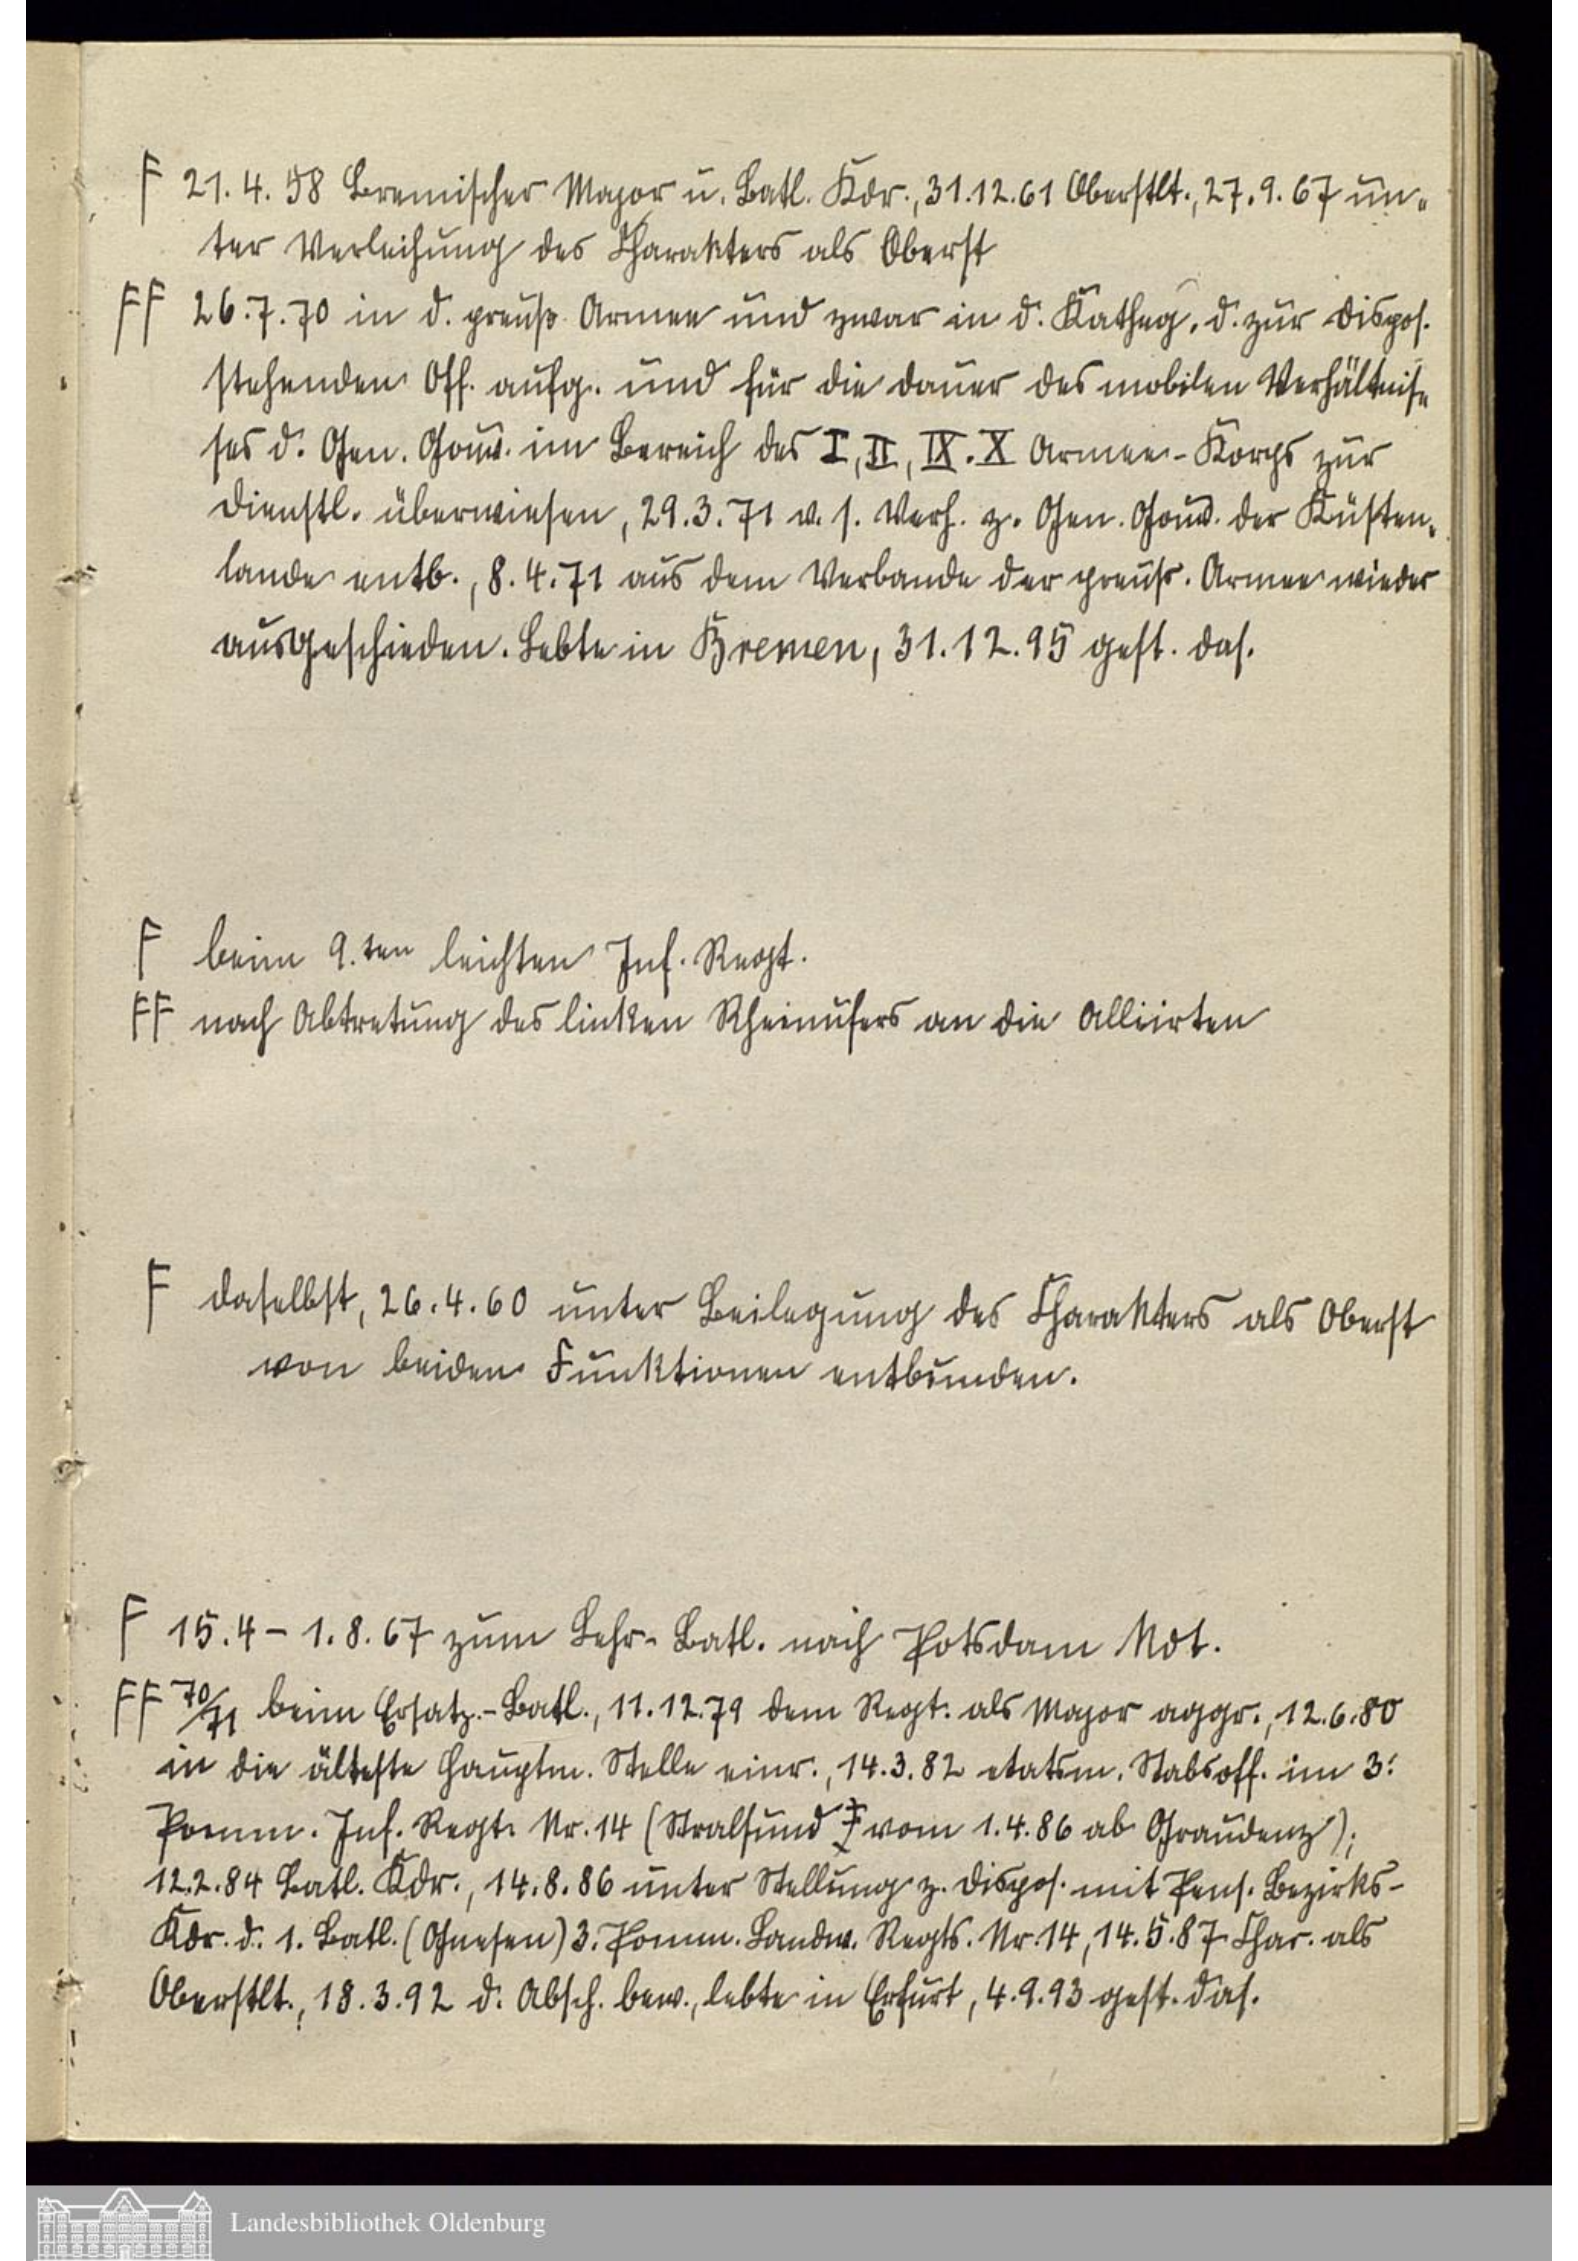 F 21.4.58 Bremischer Major u. Batl. Kdr., 31.12.61 Oberstlt., 27.9.67 un-
ter Verleihung des Charakters als Oberst
FF 26.7.70 in d. preuß. Armee und zwar in d. Katheg. d. zur Dispos.
stehenden Off. aufg. und für die Dauer des mobilen Verhältnis-
ses d. Gen. Gouv. im Bereich des I, II, IX. X Armee-Korps zur
Dienstl. überwiesen, 29.3.71 v. s. Verh. z. Gen. Gouv. der Küsten-
lande entb., 8.4.71 aus dem Verbande der preuß. Armee wieder
ausgeschieden. Lebte in Bremen, 31.12.95 gest. das.
F beim 9.ten leichten Inf. Regt.
FF nach Abtretung des linken Rheinufers an die Alliirten
F daselbst, 26.4.60 unter Beilegung des Charakters als Oberst
von beiden Funktionen entbunden.
F 15.4 - 1.8.67 zum Lehr-Batl. nach Potsdam
FF 70/71 beim Ersatz-Batl., 11.12.79 dem Regt. als Major aggr., 12.6.80
in die älteste Hauptm. Stelle einr., 14.3.82 etatsm. Stabsoff. im 3.
Pomm. Inf. Regt. Nr. 14 (Stralsund vom 1.4.86 ab Graudenz);
12.2.84 Batl. Kdr., 14.8.86 unter Stellung z. Dispos. mit Pens. Bezirks-
Kdr. d. 1. Batl. (Gnesen) 3. Pomm. Landw. Regts. Nr. 14, 14.5.87 Char. als
Oberstlt., 18.3.92 d. Absch. bew., lebte in Erfurt, 4.9.93 gest. das.
Landesbibliothek Oldenburg